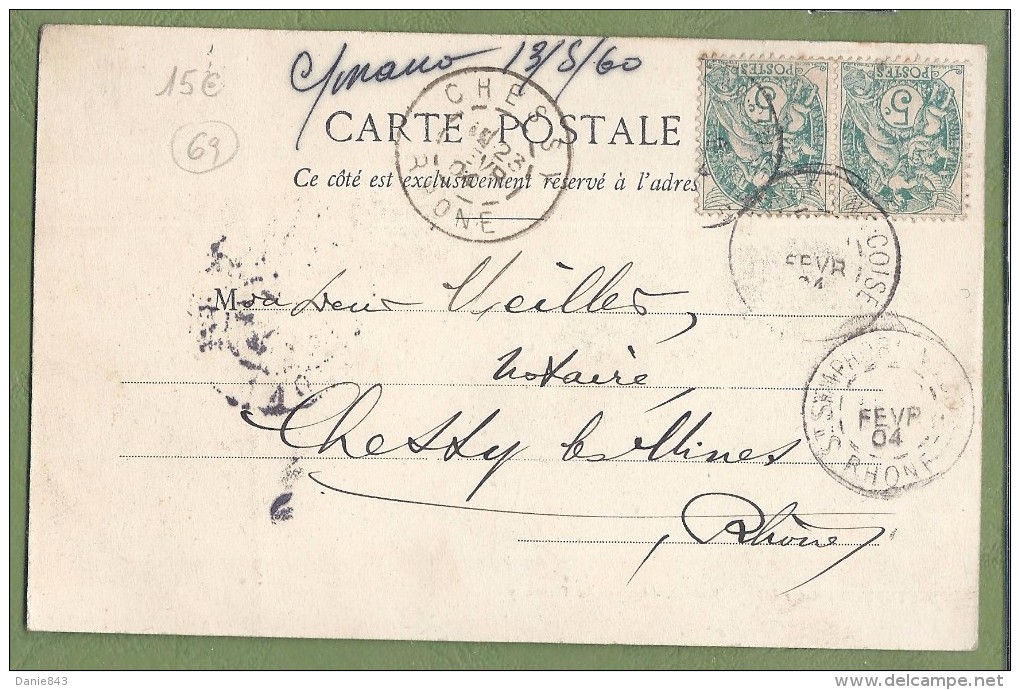 13/5/60
15€
69
CARTE POSTALE
Ce côté est exclusivement réservé à l'adres
CHESSY
23
RHONE
POSTES
5c
POSTES
5c
COISE
FEVR
04
ST SYMPHORIEN
FEVR
04
RHONE
Monsieur Veilles,
notaire
Chessy les Mines
Rhône
Danie843
www.delcampe.net